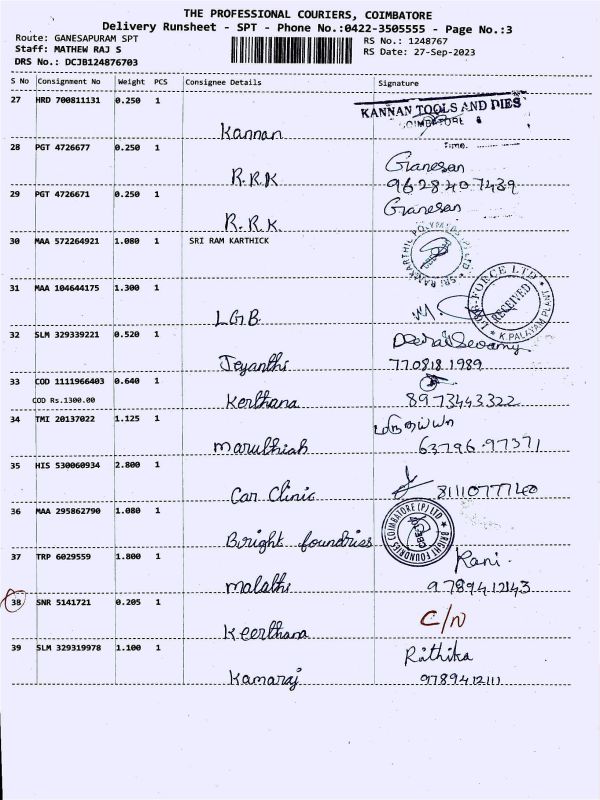 THE PROFESSIONAL COURIERS, COIMBATORE
Delivery Runsheet - SPT - Phone No.:0422-3505555 - Page No.:3
Route: GANESAPURAM SPT RS No.: 1248767
Staff: MATHEW RAJ S RS Date: 27-Sep-2023
DRS No.: DCJB124876703
S No Consignment No Weight PCS Consignee Details Signature
27 HRD 700811131 0.250 1
KANNAN TOOLS AND DIES
COIMBATORE
Kannan
28 PGT 4726677 0.250 1
Time.
Ganesan
R.R.K 9628407439
29 PGT 4726671 0.250 1
Ganesan
R.R.K.
30 MAA 572264921 1.080 1 SRI RAM KARTHICK
31 MAA 104644175 1.300 1
RECEIVED
K.PALAYAM PLANT
L.G.B
32 SLM 329339221 0.520 1
Jeyanthi 770818 1989
33 COD 1111966403 0.640 1
COD Rs.1300.00 Kerthana 8973443322
34 TMI 20137022 1.125 1
மருதய்யா
Maruthiah 63796-97371
35 HIS 530060934 2.800 1
Car Clinic
36 MAA 295862790 1.080 1
BRIGHT FOUNDRIES COIMBATORE (P) LTD
Bright foundries
37 TRP 6029559 1.800 1
Rani.
Malathi 9789412143
38 SNR 5141721 0.205 1
C/N
Keerthana
39 SLM 329319978 1.100 1
Rathika
Kamaraj 9789412111